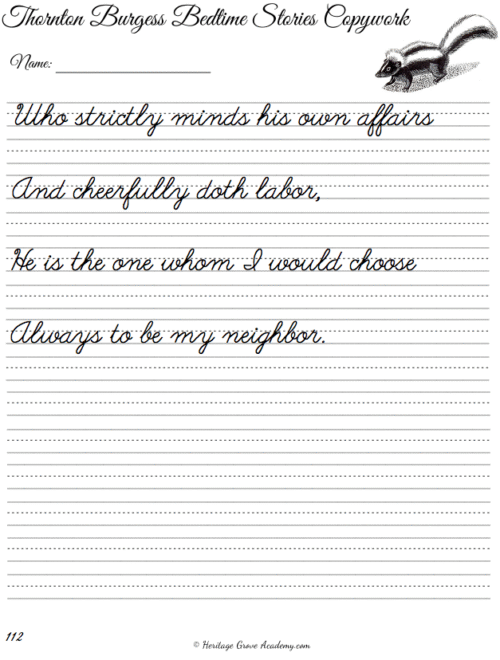 Thornton Burgess Bedtime Stories Copywork
Name:
Who strictly minds his own affairs
And cheerfully doth labor,
He is the one whom I would choose
Always to be my neighbor.
112
© Heritage Grove Academy.com